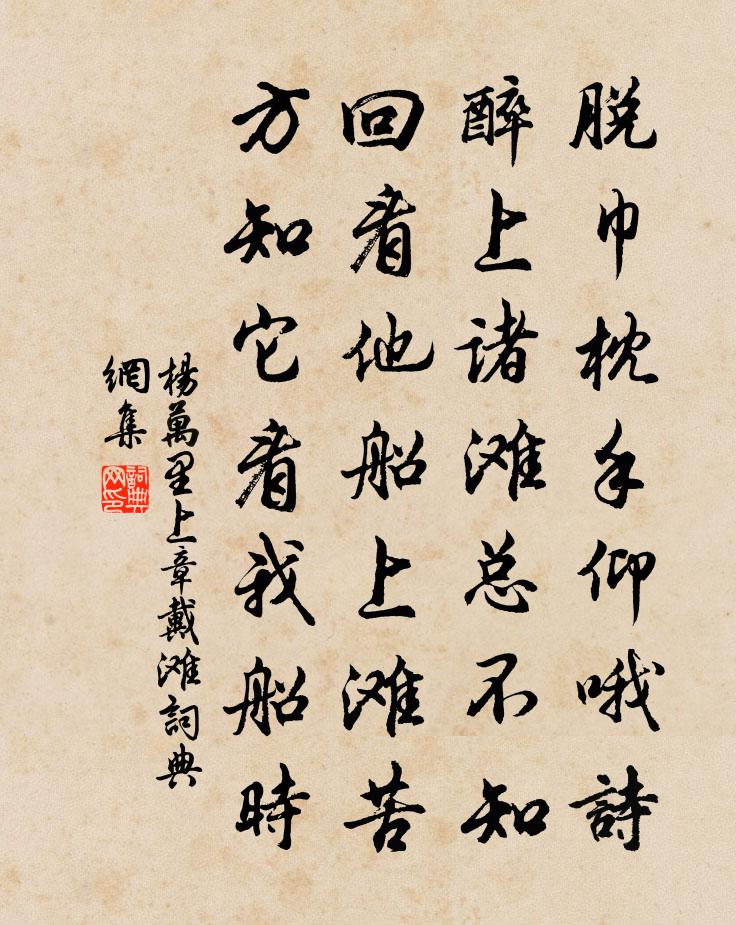 脱巾枕手仰哦詩
醉上诸滩总不知
回看他船上滩苦
方知它看我船時
楊萬里上章戴滩詞典
網集
詞典网印